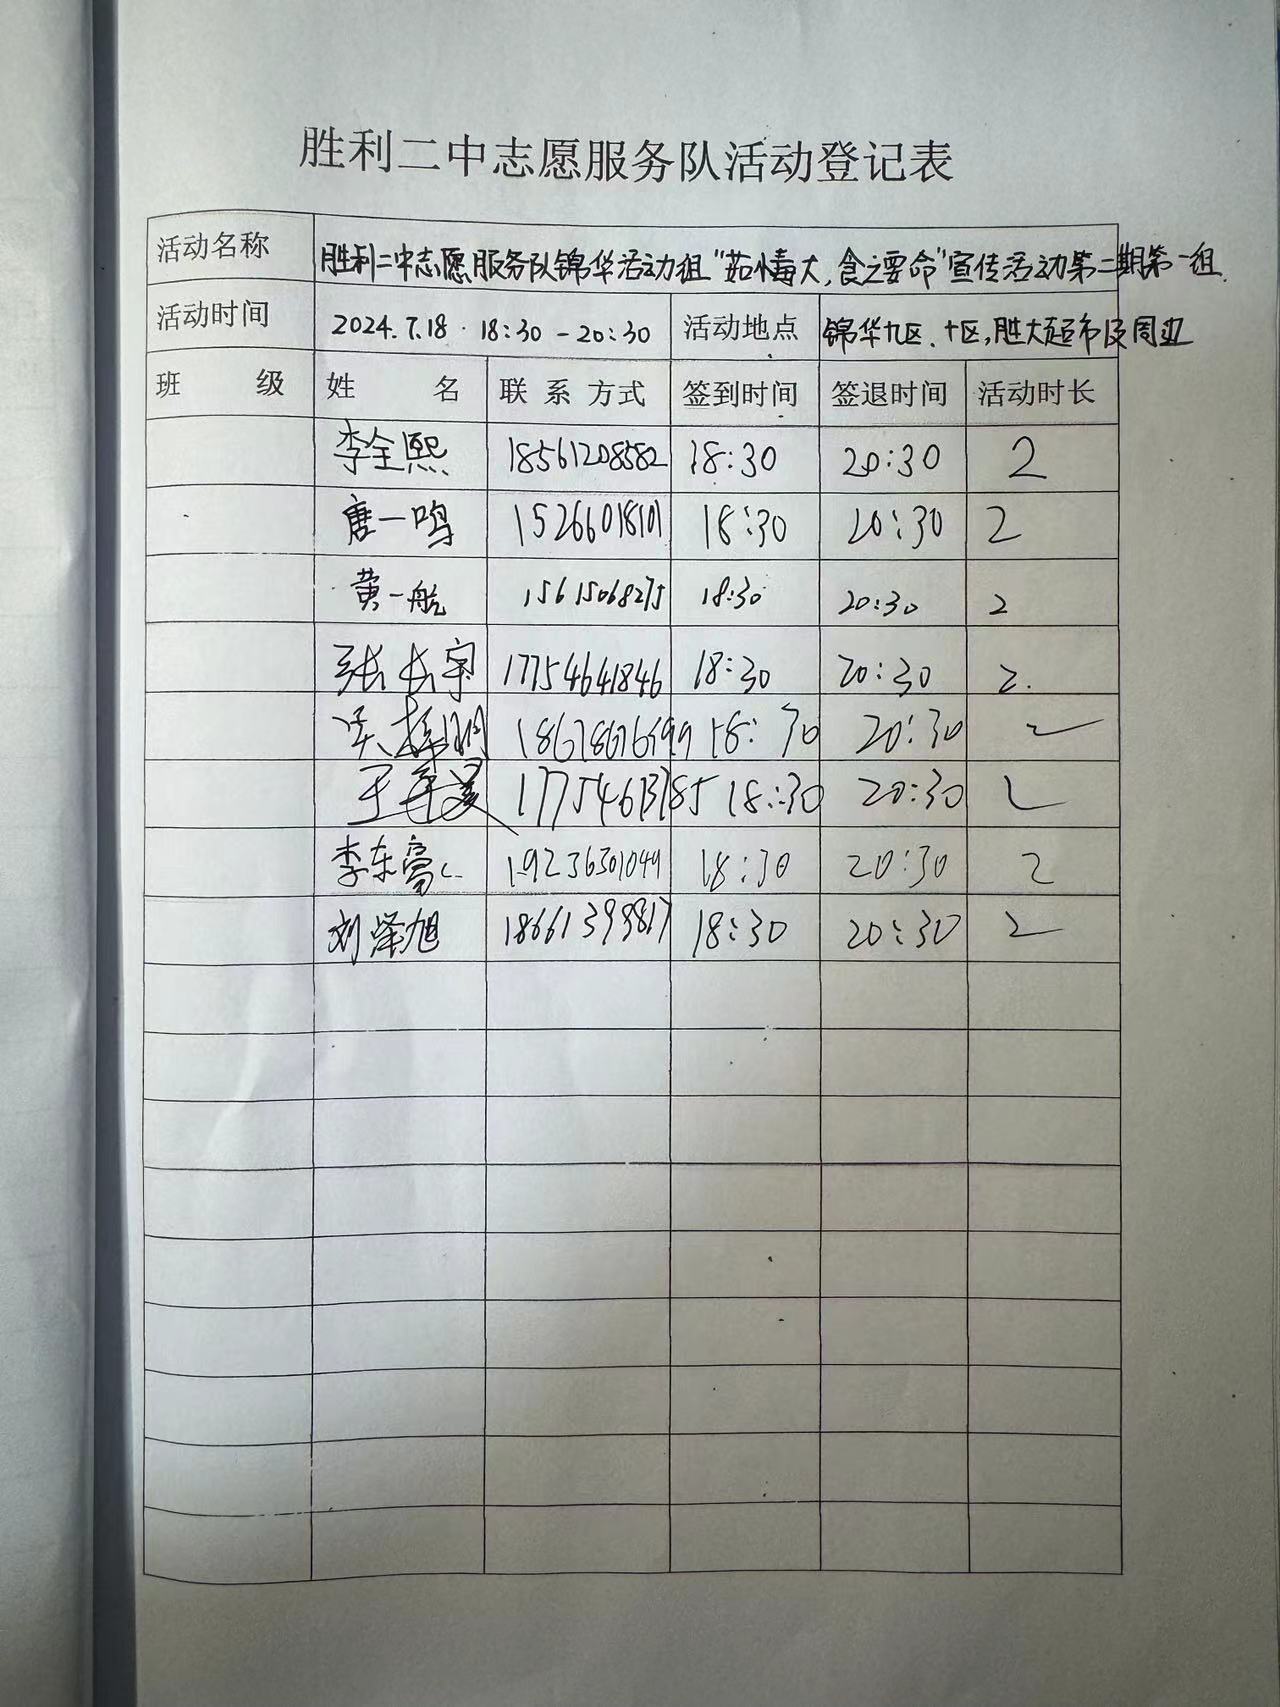 胜利二中志愿服务队活动登记表
活动名称 胜利二中志愿服务队锦华活动组“菇小毒大,食之要命”宣传活动第二期第一组.
活动时间 2024.7.18 18:30-20:30 活动地点 锦华九区、十区,胜大超市及周边
班 级 姓 名 联系方式 签到时间 签退时间 活动时长
李全熙 18561208582 18:30 20:30 2
唐一鸣 15266018101 18:30 20:30 2
黄一航 15615068275 18:30 20:30 2
张长宇 17754641846 18:30 20:30 2.
18:30 20:30 2
王 18:30 20:30 2
李东高 19236301049 18:30 20:30 2
刘泽旭 18661399817 18:30 20:30 2